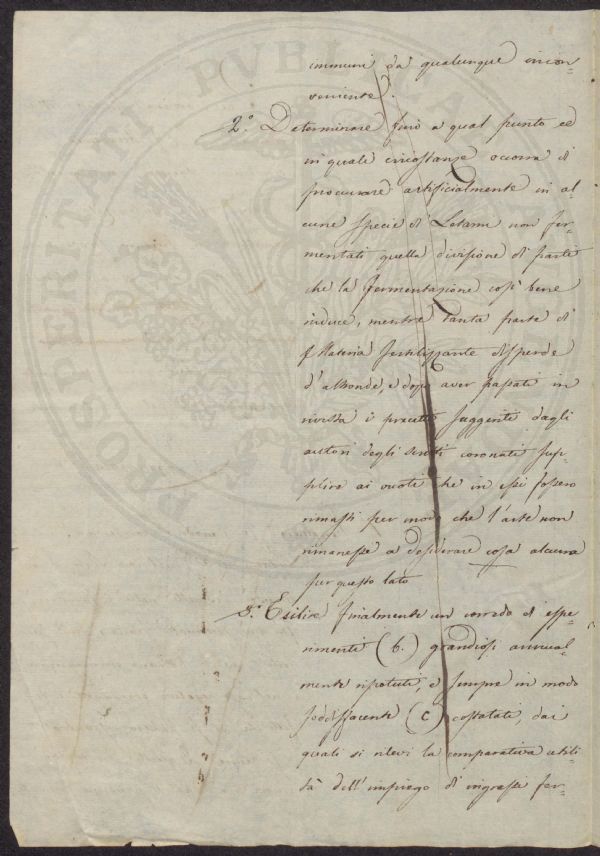 immuni da qualunque incon-
veniente.
2.° Determinare fino a qual punto ed
in quali circostanze occorra di
procurare artificialmente in al-
cune specie di Letami non fer-
mentati quella divisione di parti
che la fermentazione così bene
induce, mentre tanta parte di
Materia fertilizzante disperde
d'altronde, e dopo aver passati in
rivista i precetti suggeriti dagli
autori degli scritti coronati sup-
plire ai vuoti che in essi fossero
rimasti per modo che l'arte non
rimanesse a desiderare cosa alcuna
per questo lato
3.° Esibire finalmente un corredo di espe-
rimenti (b.) grandiosi annual-
mente ripetuti, e sempre in modo
soddisfacente (c) costatati, dai
quali si rilevi la comparativa utili-
tà dell'impiego di ingrassi fer-
PROSPERITATI PVBLICAE